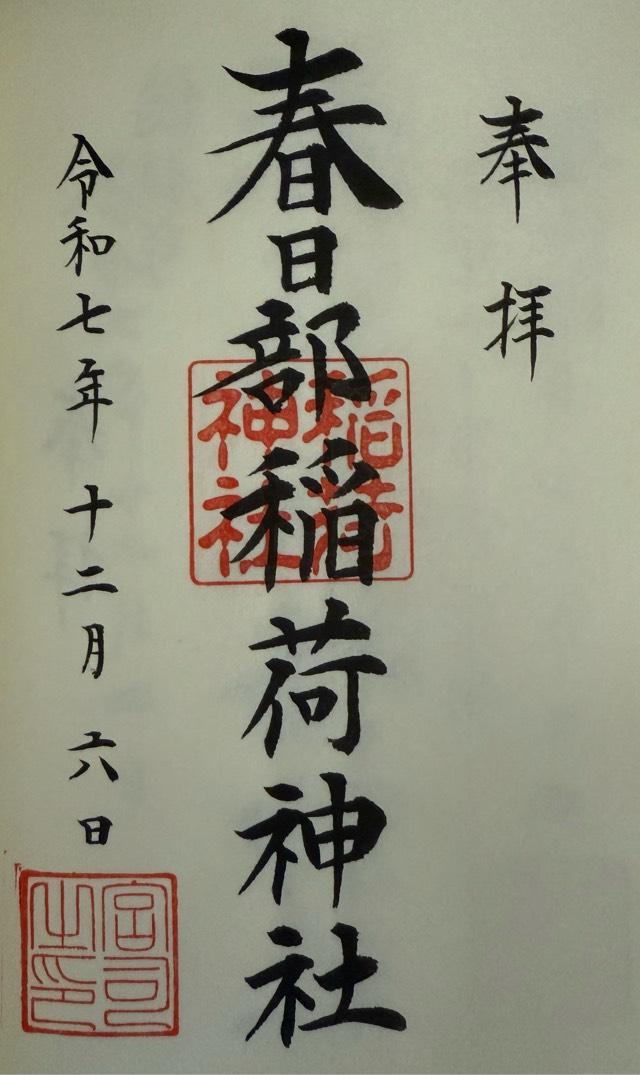 奉拝
春日部稲荷神社
稲荷
神社
令和七年十二月六日
宮司
之印